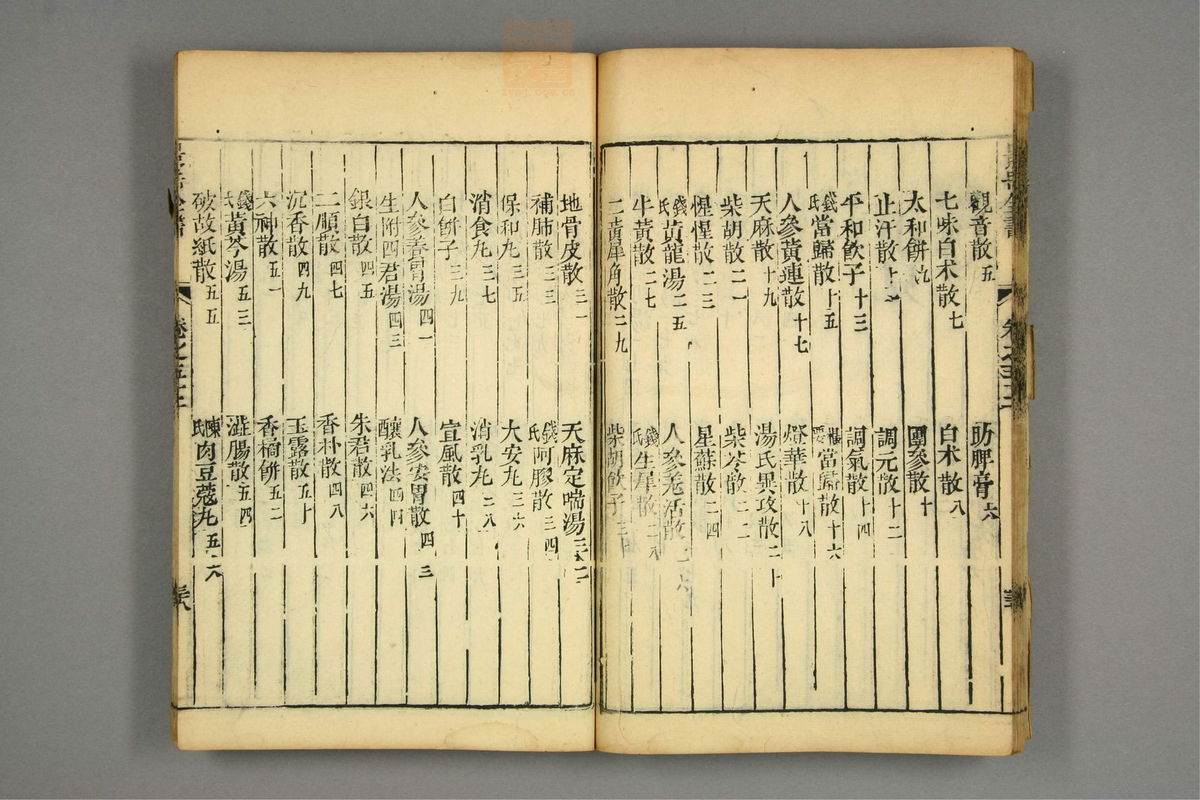 觀音散五 肪脾膏六
七味白术散七 白术散八
太和餅九 團參散十
止汗散十一 調元散十二
平和飲子十三 調氣散十四
錢氏當歸散十五 當歸散十六
人參黃連散十七 燈華散十八
天麻散十九 湯氏異攻散二十
柴胡散二一 柴苓散二二
惺惺散二三 星蘇散二四
錢氏黃龍湯二五 人參羌活散二六
牛黃散二七 錢氏生犀散二八
二黃犀角散二九 柴胡飲子三十
地骨皮散三一 天麻定喘湯三二
補肺散三三 錢氏阿膠散三四
保和丸三五 大安丸三六
消食丸三七 消乳丸三八
白餅子三九 宣風散四十
人參養胃湯四一 人參安胃散四二
生附四君湯四三 釀乳法四四
銀白散四五 朱君散四六
二順散四七 香朴散四八
沉香散四九 玉露散五十
六神散五一 香橘餅五二
錢氏黃芩湯五三 澁腸散五四
破故紙散五五 陳氏肉豆蔻丸五六
卷之五十三